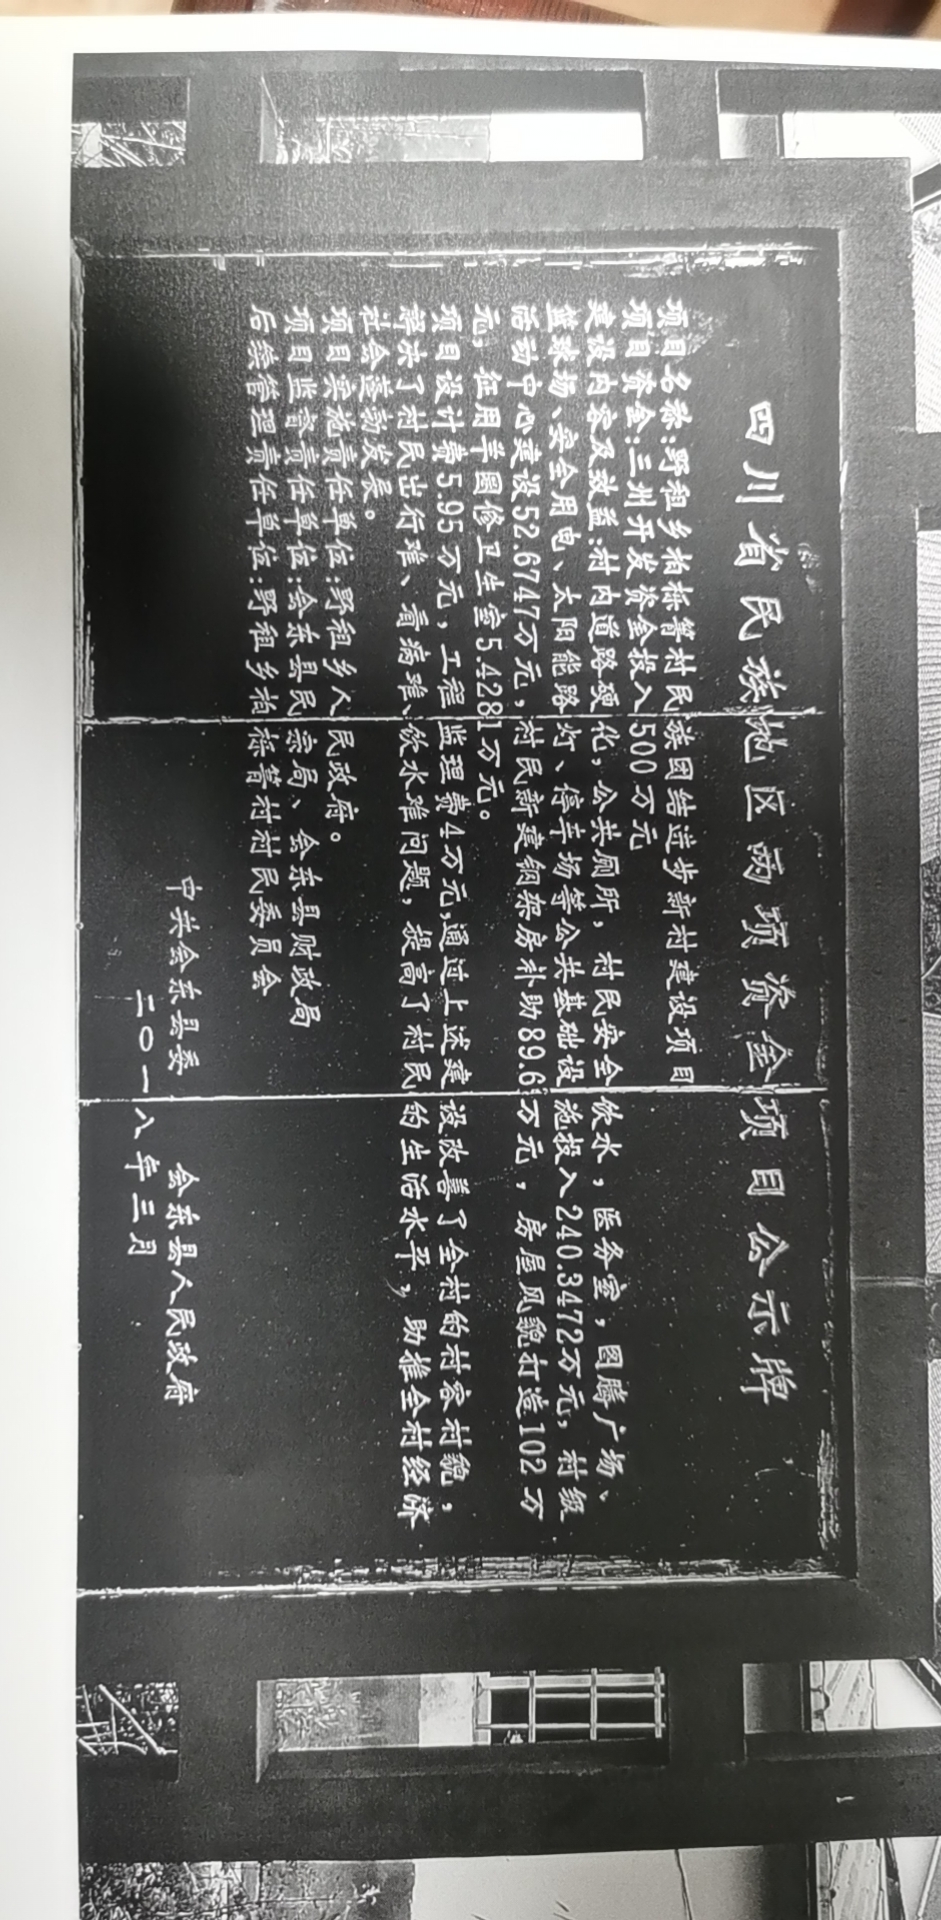 四川省民族地区两项资金项目公示牌
项目名称:野租乡柏栎箐村民族团结进步新村建设项目
项目资金:三州开发资金投入500万元
建设内容及效益:村内道路硬化,公共厕所,村民安全饮水,医务室,图腾广场、
篮球场、安全用电、太阳能路灯、停车场等公共基础设施投入240.3472万元,村级
活动中心建设52.6747万元,村民新建钢架房补助89.6万元,房屋风貌打造102万
元,征用羊圈修卫生室5.4281万元。
项目设计费5.95万元,工程监理费4万元,通过上述建设改善了全村的村容村貌,
解决了村民出行难、看病难、饮水难问题,提高了村民的生活水平,助推全村经济
社会蓬勃发展。
项目实施责任单位:野租乡人民政府。
项目监督责任单位:会东县民宗局、会东县财政局
后续管理责任单位:野租乡柏栎箐村村民委员会
中共会东县委 会东县人民政府
二〇一八年三月